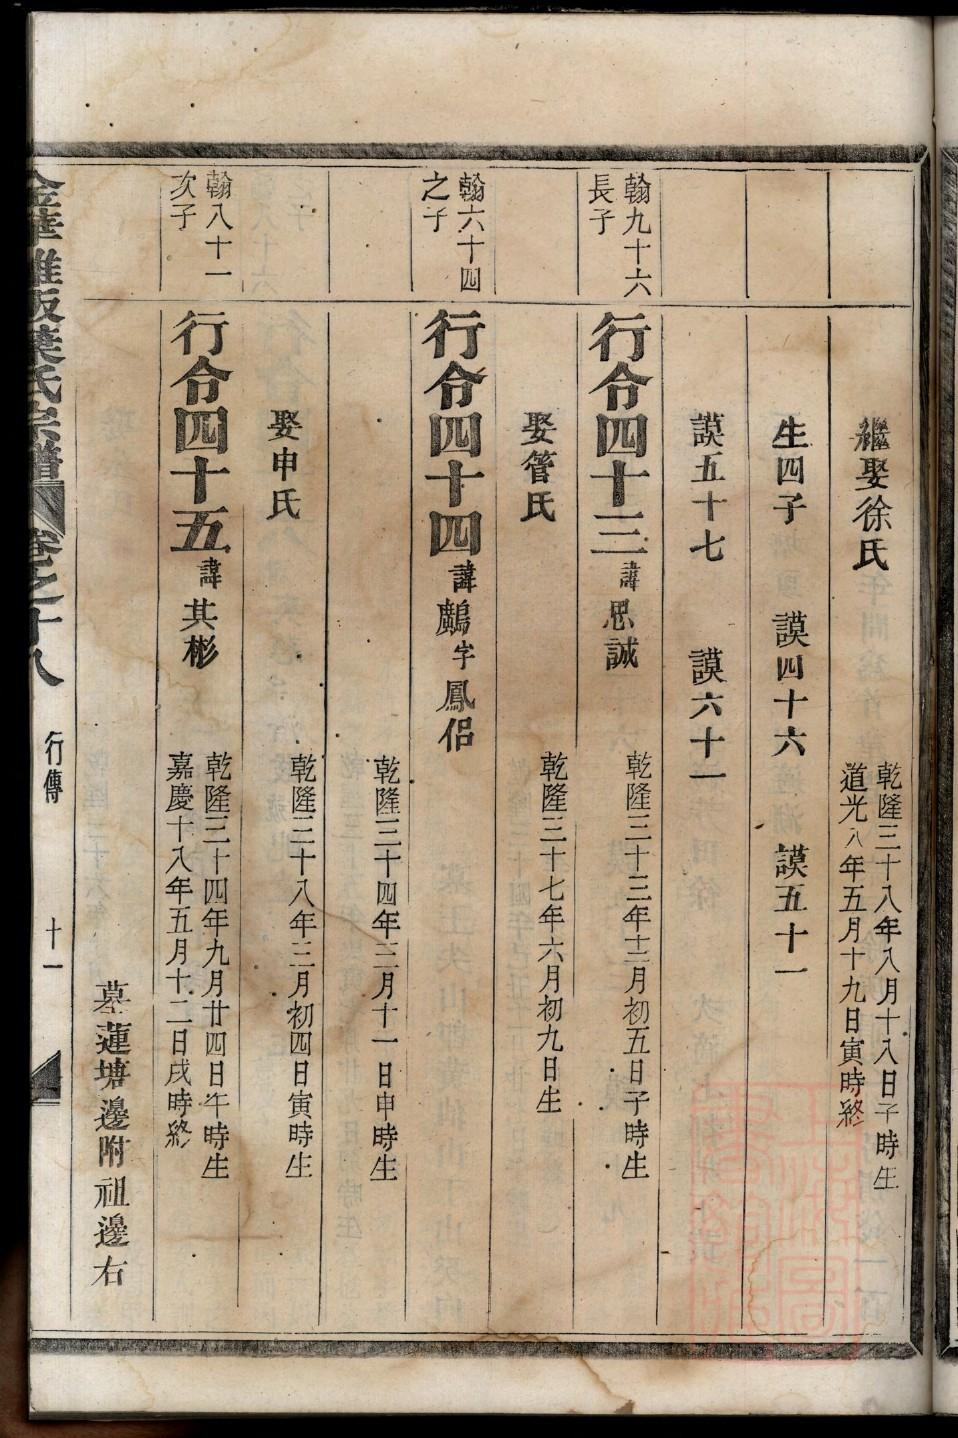 繼娶徐氏
乾隆三十八年八月十八日子時生
道光八年五月十九日寅時終
生四子 謨四十六 謨五十一
謨五十七 謨六十一
翰九十六
長子
行令四十三 諱思誠
乾隆三十三年十二月初五日子時生
娶管氏
乾隆三十七年六月初九日生
翰六十四
之子
行令四十四 諱鷓字鳳侶
乾隆三十四年三月十一日申時生
娶申氏
乾隆三十八年三月初四日寅時生
翰八十一
次子
行令四十五 諱其彬
乾隆三十四年九月廿四日午時生
嘉慶十八年五月十二日戌時終
墓蓮塘邊附祖邊右
金華雅畈葉氏宗譜 卷之十八 行傳 十一